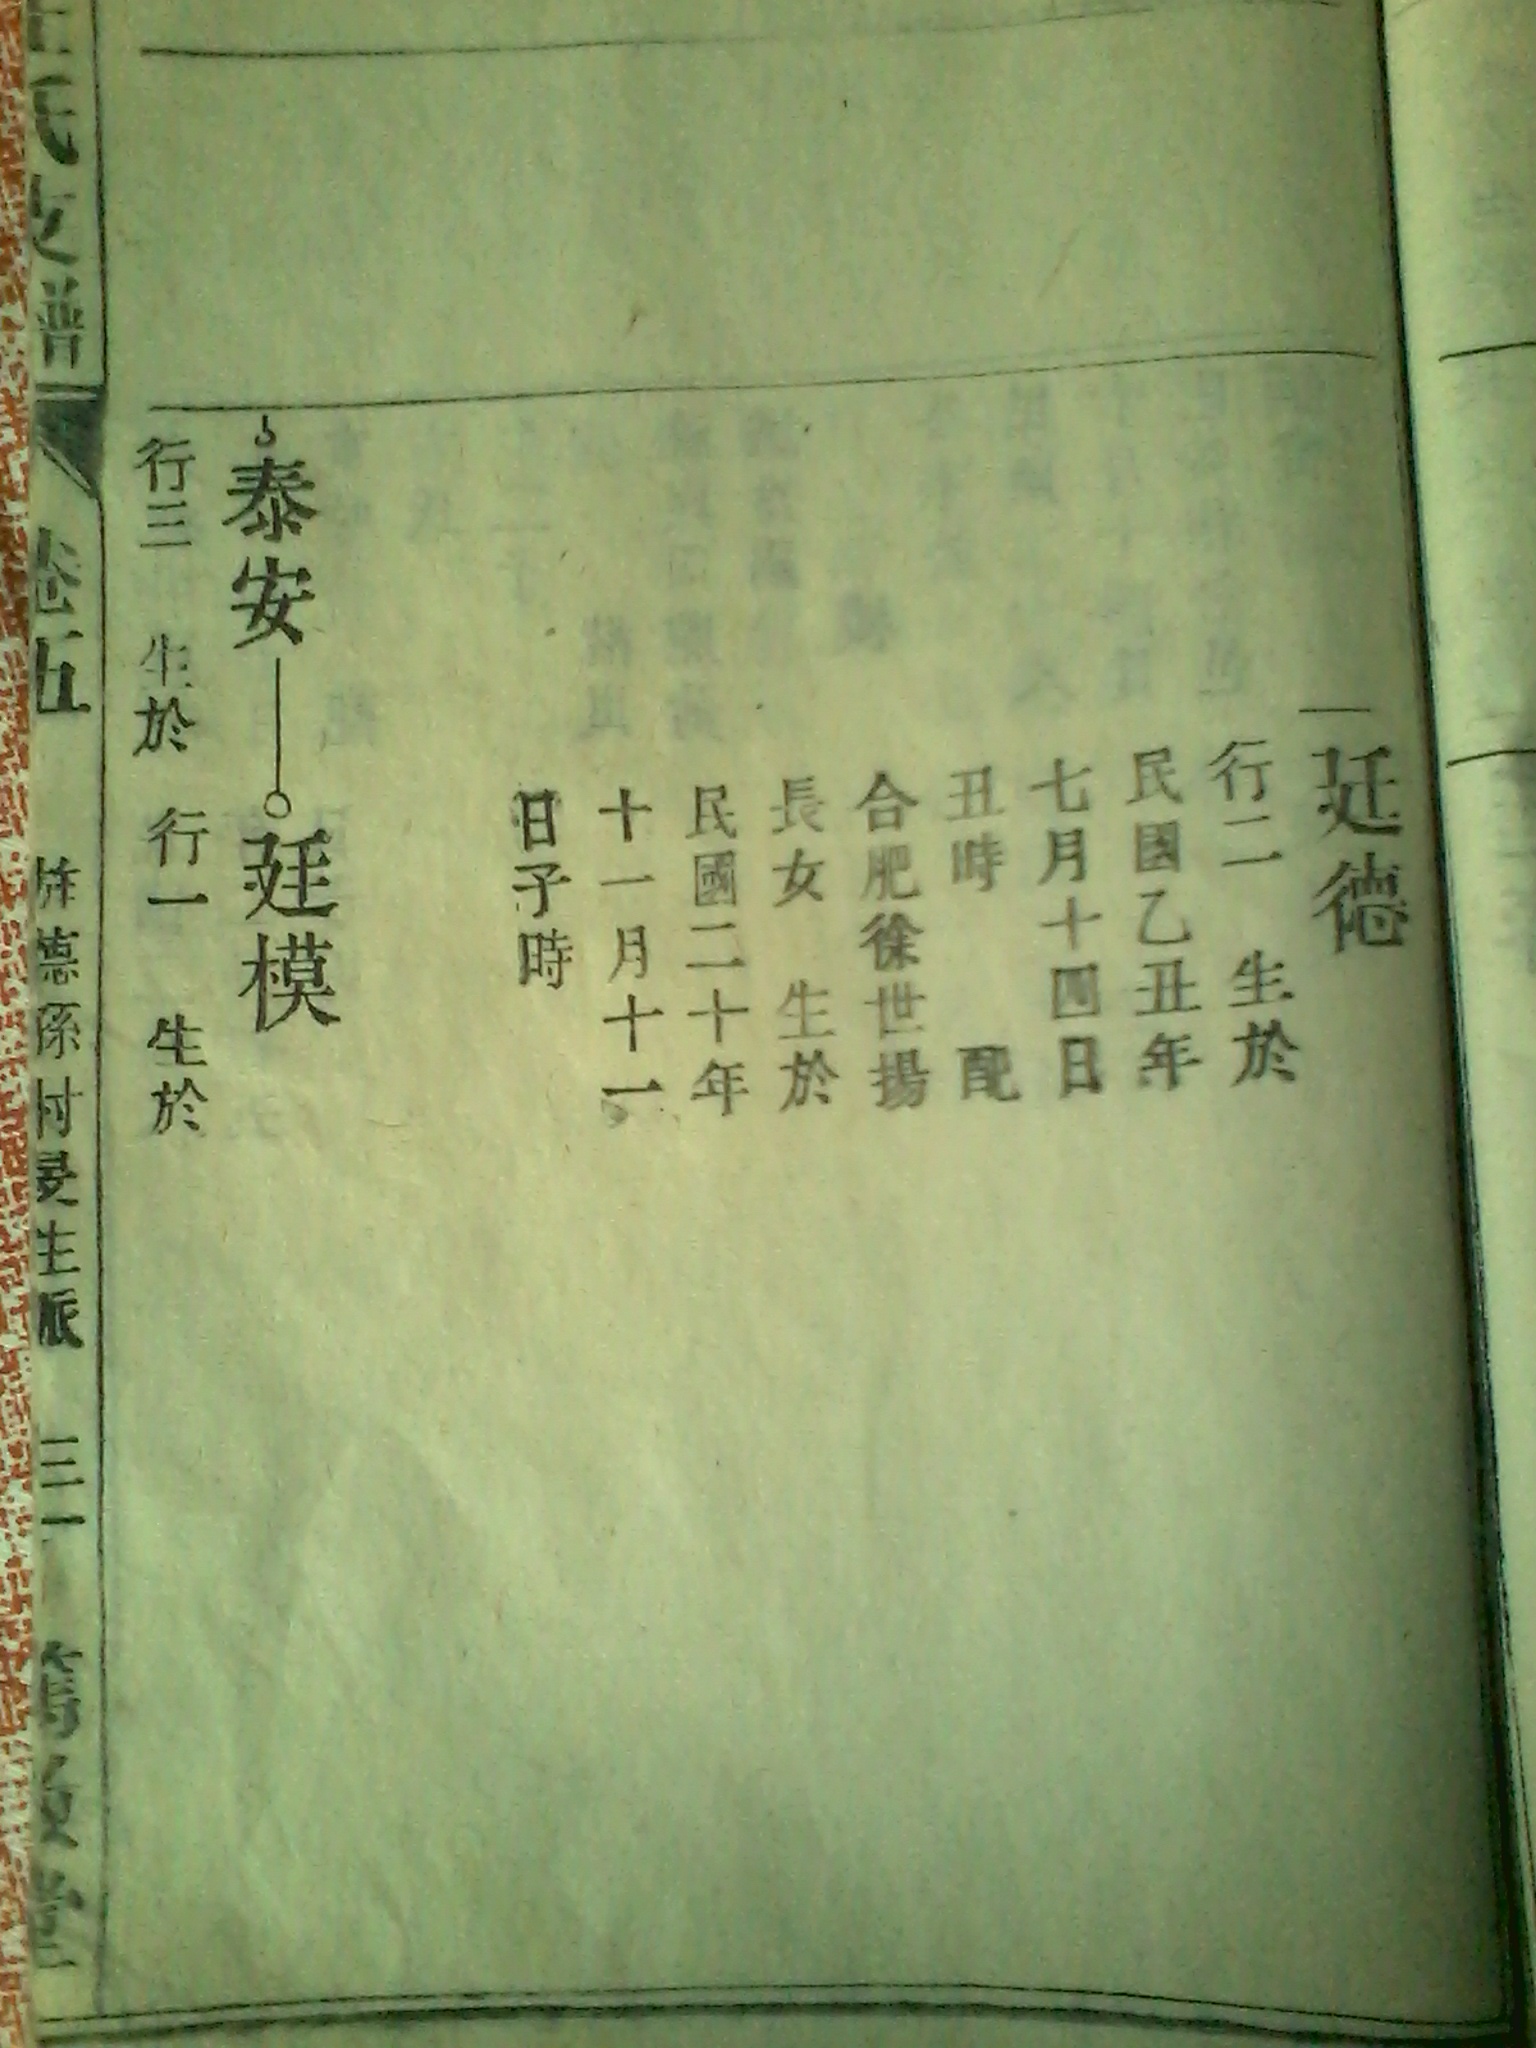 廷德
行二 生於
民國乙丑年
七月十四日
丑時 配
合肥徐世揚
長女 生於
民國二十年
十一月十一
日子時
泰安 廷模
行三 生於 行一 生於
氏支譜 卷五 德孫村晏生派 三一 敦堂